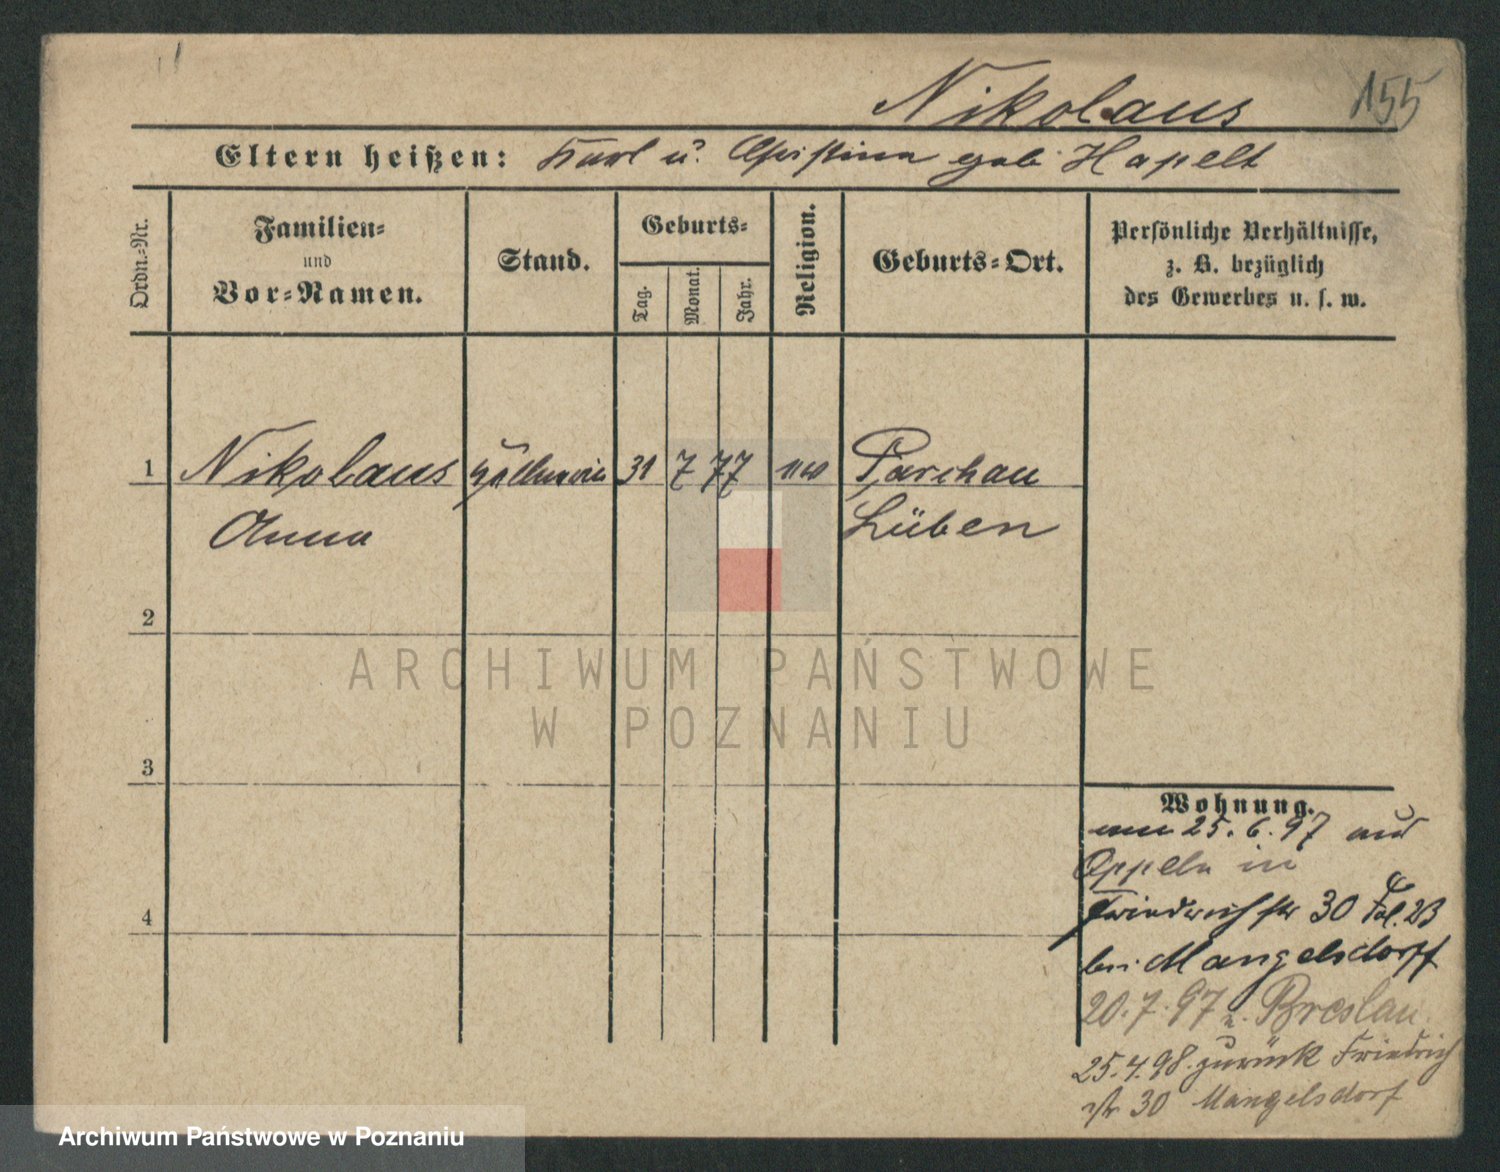 Nikolaus
155
Eltern heißen: Karl u. Christina geb. Hapelt
Ordn.-Nr.
Familien-
und
Vor-Namen.
Stand.
Geburts-
Tag.
Monat.
Jahr.
Religion.
Geburts-Ort.
Persönliche Verhältnisse,
z. B. bezüglich
des Gewerbes u. s. w.
1 Nikolaus 31 7 77 Parchau
Anna Lüben
2
3
4
Wohnung.
25. 6. 97 aus
Oppeln in
Friedrichstr 30
bei Mangelsdorff
20. 7. 97 n. Breslau
25. 4. 98. zurück Friedrich
str 30 Mangelsdorf
ARCHIWUM PAŃSTWOWE
W POZNANIU
Archiwum Państwowe w Poznaniu